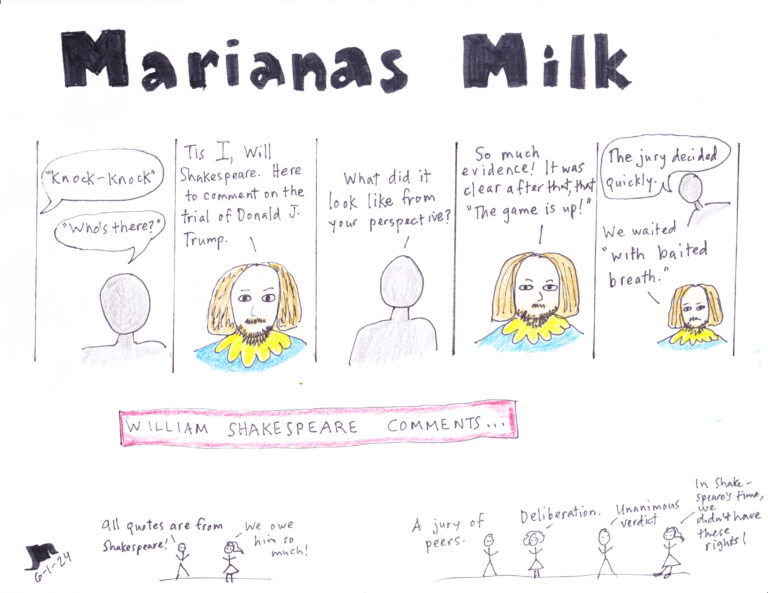 Marianas Milk
"Knock-knock"
"Who's there?"
Tis I, Will
Shakespeare. Here
to comment on the
trial of Donald J.
Trump.
What did it
look like from
your perspective?
So much
evidence! It was
clear after that, that
"The game is up!"
The jury decided
quickly.
We waited
"with baited
breath."
WILLIAM SHAKESPEARE COMMENTS...
All quotes are from
Shakespeare!
We owe
him so
much!
A jury of
peers.
Deliberation.
Unanimous
verdict
In Shake-
speare's time,
we
didn't have
these
rights!
6-1-24